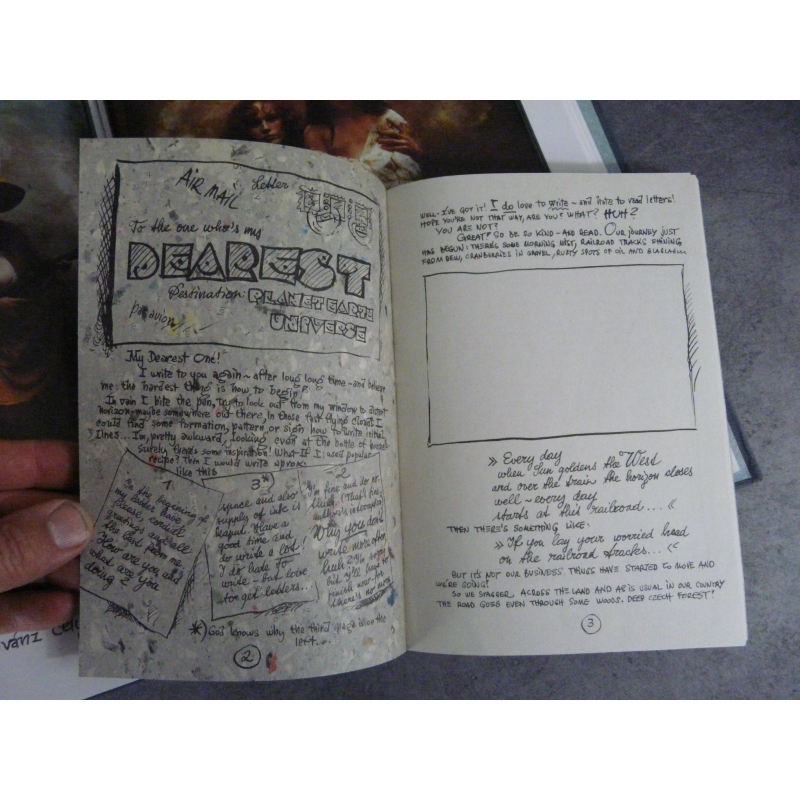 AIR MAIL Letter
To the one who's my
DEAREST
Destination: PLANET EARTH
UNIVERSE
par avion
My Dearest One!
I write to you again - after long long time - and believe
me: the hardest thing is how to begin!
In vain I bite the pen, try to look out from my window to distant
horizon - maybe somewhere out there, in those fast flying clouds I
could find some formation, pattern, or sign how to write initial
lines... I'm pretty awkward, looking even at the bottle of
surely there's some inspiration! What if I used popular
recipe? Then I would write
like this
1
In the beginning of
my letter have
please
greetings
the best from me.
How are you and
what are you
doing?
3*)
space and also
supply of ink is
leaped. Have a
good time and
do write a lot!
I do hate to
write - but love
to get letters...
2
I'm fine and do no
Why you don't
write more often
*) God knows why the third page is on the
left...
2
WELL - I'VE GOT IT! I do love to write - and hate to read letters!
HOPE YOU'RE NOT THAT WAY, ARE YOU? WHAT? HUH?
YOU ARE NOT?
GREAT! SO BE SO KIND - AND READ. OUR JOURNEY JUST
HAS BEGUN: THERE'S SOME MORNING MIST, RAILROAD TRACKS SHINING
FROM DEW, CRANBERRIES IN GRAVEL, RUSTY SPOTS OF OIL AND BLABLABLA...
» Every day
when Sun goldens the West
and over the train the horizon closes
well - every day
starts at this railroad... «
THEN THERE'S SOMETHING LIKE:
» If you lay your worried head
on the railroad tracks... «
BUT IT'S NOT OUR BUSINESS THINGS HAVE STARTED TO MOVE AND
WE'RE GOING!
SO WE STAGGER ACROSS THE LAND AND AS IS USUAL IN OUR COUNTRY
THE ROAD GOES EVEN THROUGH SOME WOODS. DEEP CZECH FOREST!
3